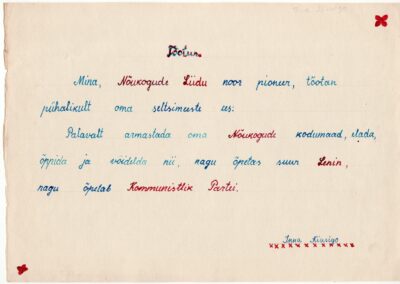 Tõotus.
Mina, Nõukogude Liidu noor pioneer, tõotan
pühalikult oma seltsimeeste ees:
Palavalt armastada oma Nõukogude kodumaad, elada,
õppida ja võidelda nii, nagu õpetas suur Lenin,
nagu õpetab Kommunistlik Partei.
Inna